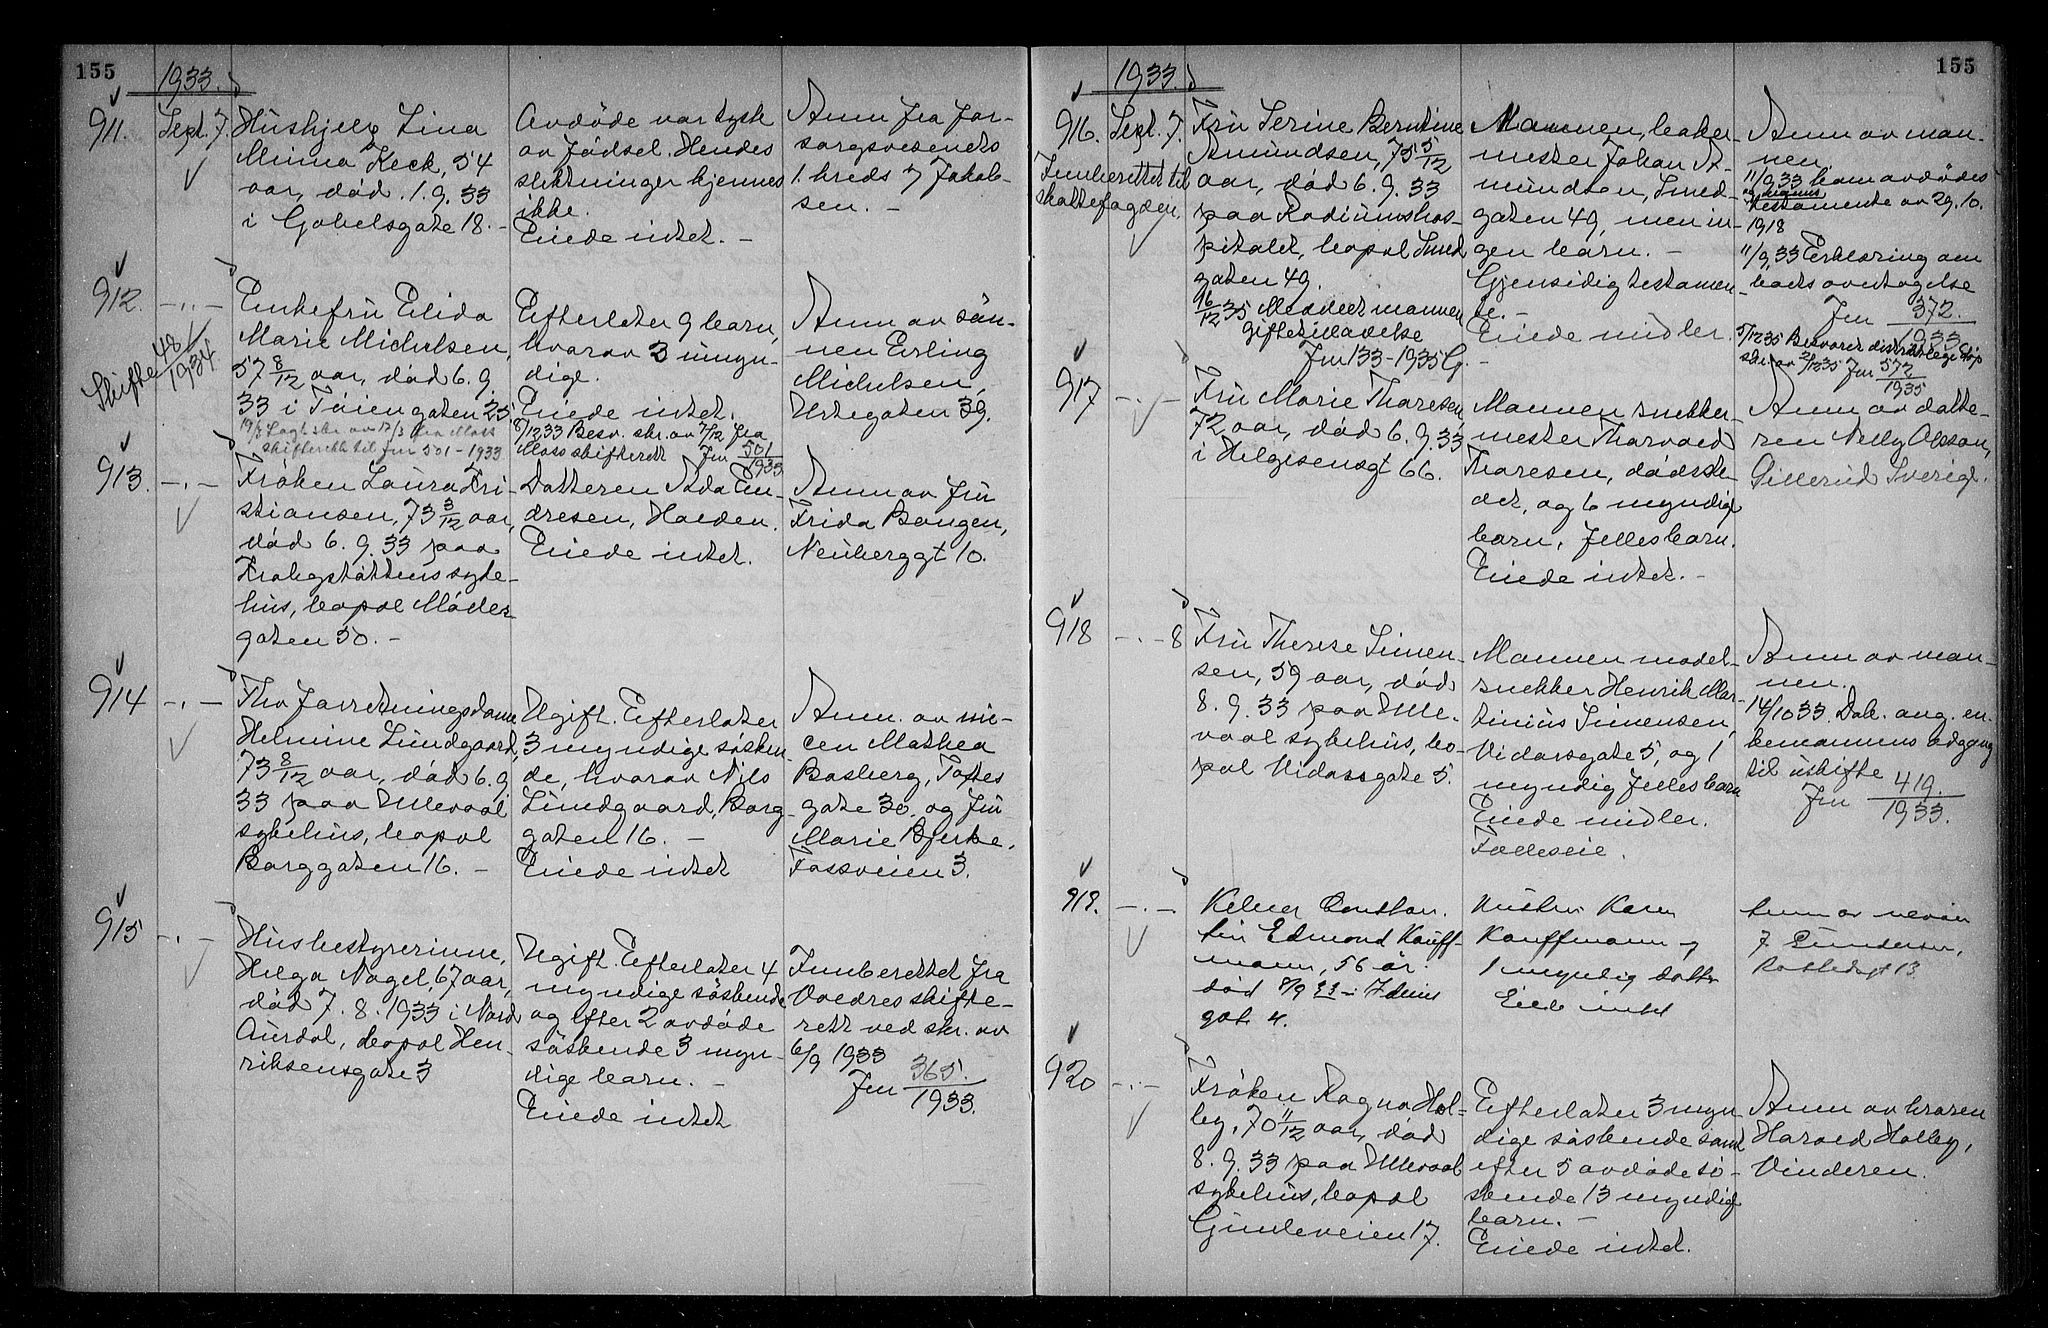 155
1933.
911.
Sept. 7.
Hushjelp Lina
Minna Keck, 54
aar, død. 1. 9. 33
i Gabelsgate 18. -
Avdøde var tysk
av fødsel. Hendes
slektninger kjennes
ikke.
Eiede intet. -
Anm fra For-
sorgsvesenets
1. kreds v Jakob-
sen. -
912.
- " -
Skifte 48/1934
Enkefru Elida
Marie Michelsen,
57 8/12 aar, død 6. 9.
33 i Tøiengaten 25
19/3 Lagt skr. av 17/3 fra Moss
skifterett til Jnr 501 - 1933
Efterlater 9 barn,
hvorav 3 umyn-
dige.
Eiede intet.
8/12 33 Besv. skr. av 7/12 fra
Moss skifterett Jnr 501/1933
Anm av søn-
nen Erling
Michelsen,
Urtegaten 39.
913.
- " -
Frøken Laura Kri-
stiansen, 73 3/12 aar,
død 6. 9. 33 paa
Krohgstøttens syke-
hus, bopæl Møller
gaten 50. -
Datteren Ada En-
dresen, Halden.
Eiede intet.
Anm av fru
Frida Bangen,
Neuberggt 10.
914
- " -
Fhv forretningsdame
Helmine Lundgaard,
73 8/12 aar, død 6. 9.
33 paa Ullevaal
sykehus, bopæl
Borggaten 16. -
Ugift. Efterlater
3 myndige søsken-
de, hvorav Nils
Lundgaard, Borg-
gaten 16. -
Eiede intet
Anm. av nie-
cen Mathea
Basberg, Toftes
gate 30, og fru
Marie Bjerke,
Fossveien 3.
915
- " -
Husbestyrerinne,
Helga Nagel, 67 aar,
død 7. 8. 1933 i Nord
Aurdal, bopæl Hen-
riksensgate 3
Ugift. Efterlater 4
myndige søskende
og efter 2 avdøde
søskende 3 myn-
dige barn. -
Eiede intet
Innberettet fra
Valdres skifte-
rett ved skr. av
6/9 1933
Jnr 365./1933.
155
1933.
916.
Sept. 7.
Innberettet til
skattefogden.
Fru Serine Berntine
Amundsen, 75 5/12
aar, død 6. 9. 33
paa Radiumshos-
pitalet, bopæl Smed
gaten 49.
16/12 35 Meddelt mannen
giftetilladelse
Jnr 133 - 1935 G.
Mannen, baker-
mester Johan A-
mundsen, Smed-
gaten 49, men in-
gen barn. -
Gjensidig testamen-
te. -
Eiede midler.
-
Anm av man-
nen.
11/9. 33 kom avdødes
og mannens
testamente av 29. 10.
1918
11/9. 33 Erklæring om
boets overtagelse
Jnr 372./1933
5/12 35 Besvaret
skr. av 2/12 35 Jnr 572/1935
917
- " -
Fru Marie Thoresen
72 aar, død 6. 9. 33
i Helgesensgt 66.
Mannen snekker
mester Thorvald
Thoresen, dødssste-
det, og 6 myndige
barn, fellesbarn.
Eiede intet. -
Anm av datte-
ren Nelly Olsson,
Gillerud Sverige.
918
- " - 8
Fru Therese Simen-
sen, 59 aar, død
8. 9. 33 paa Ulle-
vaal sykehus, bo-
pæl Vidarsgate 5.
Mannen model-
snekker Henrik Mar-
tinius Simensen,
Vidarsgate 5, og 1
myndig fellesbarn
Eiede midler.
Fælleseie.
Anm av man-
nen.
14/10 33. Dok. ang. en-
kemannens adgang
til uskifte
Jnr 419./1933.
919.
- " -
Kelner Constan-
tin Edmond Kauff-
mann, 56 år.
død 8/9 33 i Iduns
gat. 4.
Hustru Karen
Kauffmann og
1 myndig datter
Eiede intet
Anm av nevøn
J. Gundersen,
920
- " -
Frøken Ragna Hol-
by, 70 11/12 aar, død
8. 9. 33 paa Ullevaal
sykehus, bopæl
Gimleveien 17.
Efterlater 3 myn-
dige søskende samt
efter 5 avdøde sø-
skende 13 myndige
barn. -
Eiede intet.
Anm av broren
Harald Holby,
Vinderen.